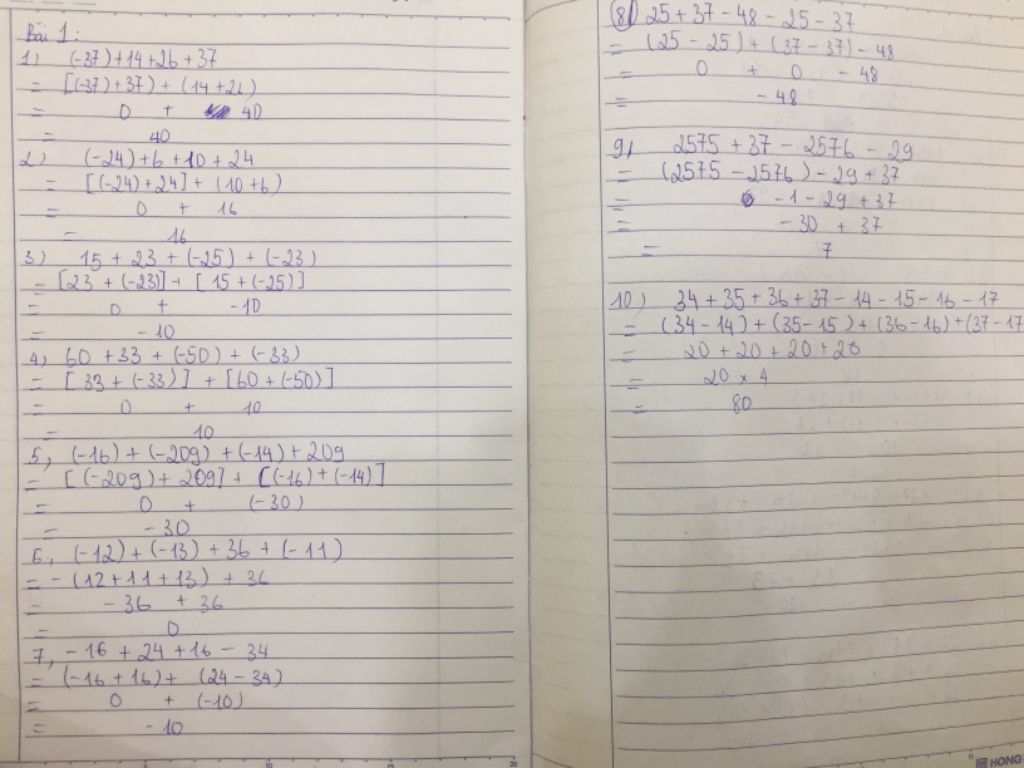 Bài 1:
1) (-37)+14+26+37
= [(-37)+37) + (14+26)
= 0 + 40
= 40
2) (-24)+6+10+24
= [(-24)+24] + (10+6)
= 0 + 16
= 16
3) 15 + 23 + (-25) + (-23)
= [23 + (-23)] + [15 + (-25)]
= 0 + -10
= -10
4, 60 + 33 + (-50) + (-33)
= [33 + (-33)] + [60 + (-50)]
= 0 + 10
= 10
5, (-16) + (-209) + (-14) + 209
= [(-209) + 209] + [(-16) + (-14)]
= 0 + (-30)
= -30
6, (-12) + (-13) + 36 + (-11)
= -(12+11+13) + 36
= -36 + 36
= 0
7, -16 + 24 + 16 - 34
= (-16 + 16) + (24 - 34)
= 0 + (-10)
= -10
8) 25 + 37 - 48 - 25 - 37
= (25 - 25) + (37 - 37) - 48
= 0 + 0 - 48
= -48
9, 2575 + 37 - 2576 - 29
= (2575 - 2576) - 29 + 37
= -1 - 29 + 37
= -30 + 37
= 7
10) 34 + 35 + 36 + 37 - 14 - 15 - 16 - 17
= (34 - 14) + (35 - 15) + (36 - 16) + (37 - 17
= 20 + 20 + 20 + 20
= 20 × 4
= 80
HONG